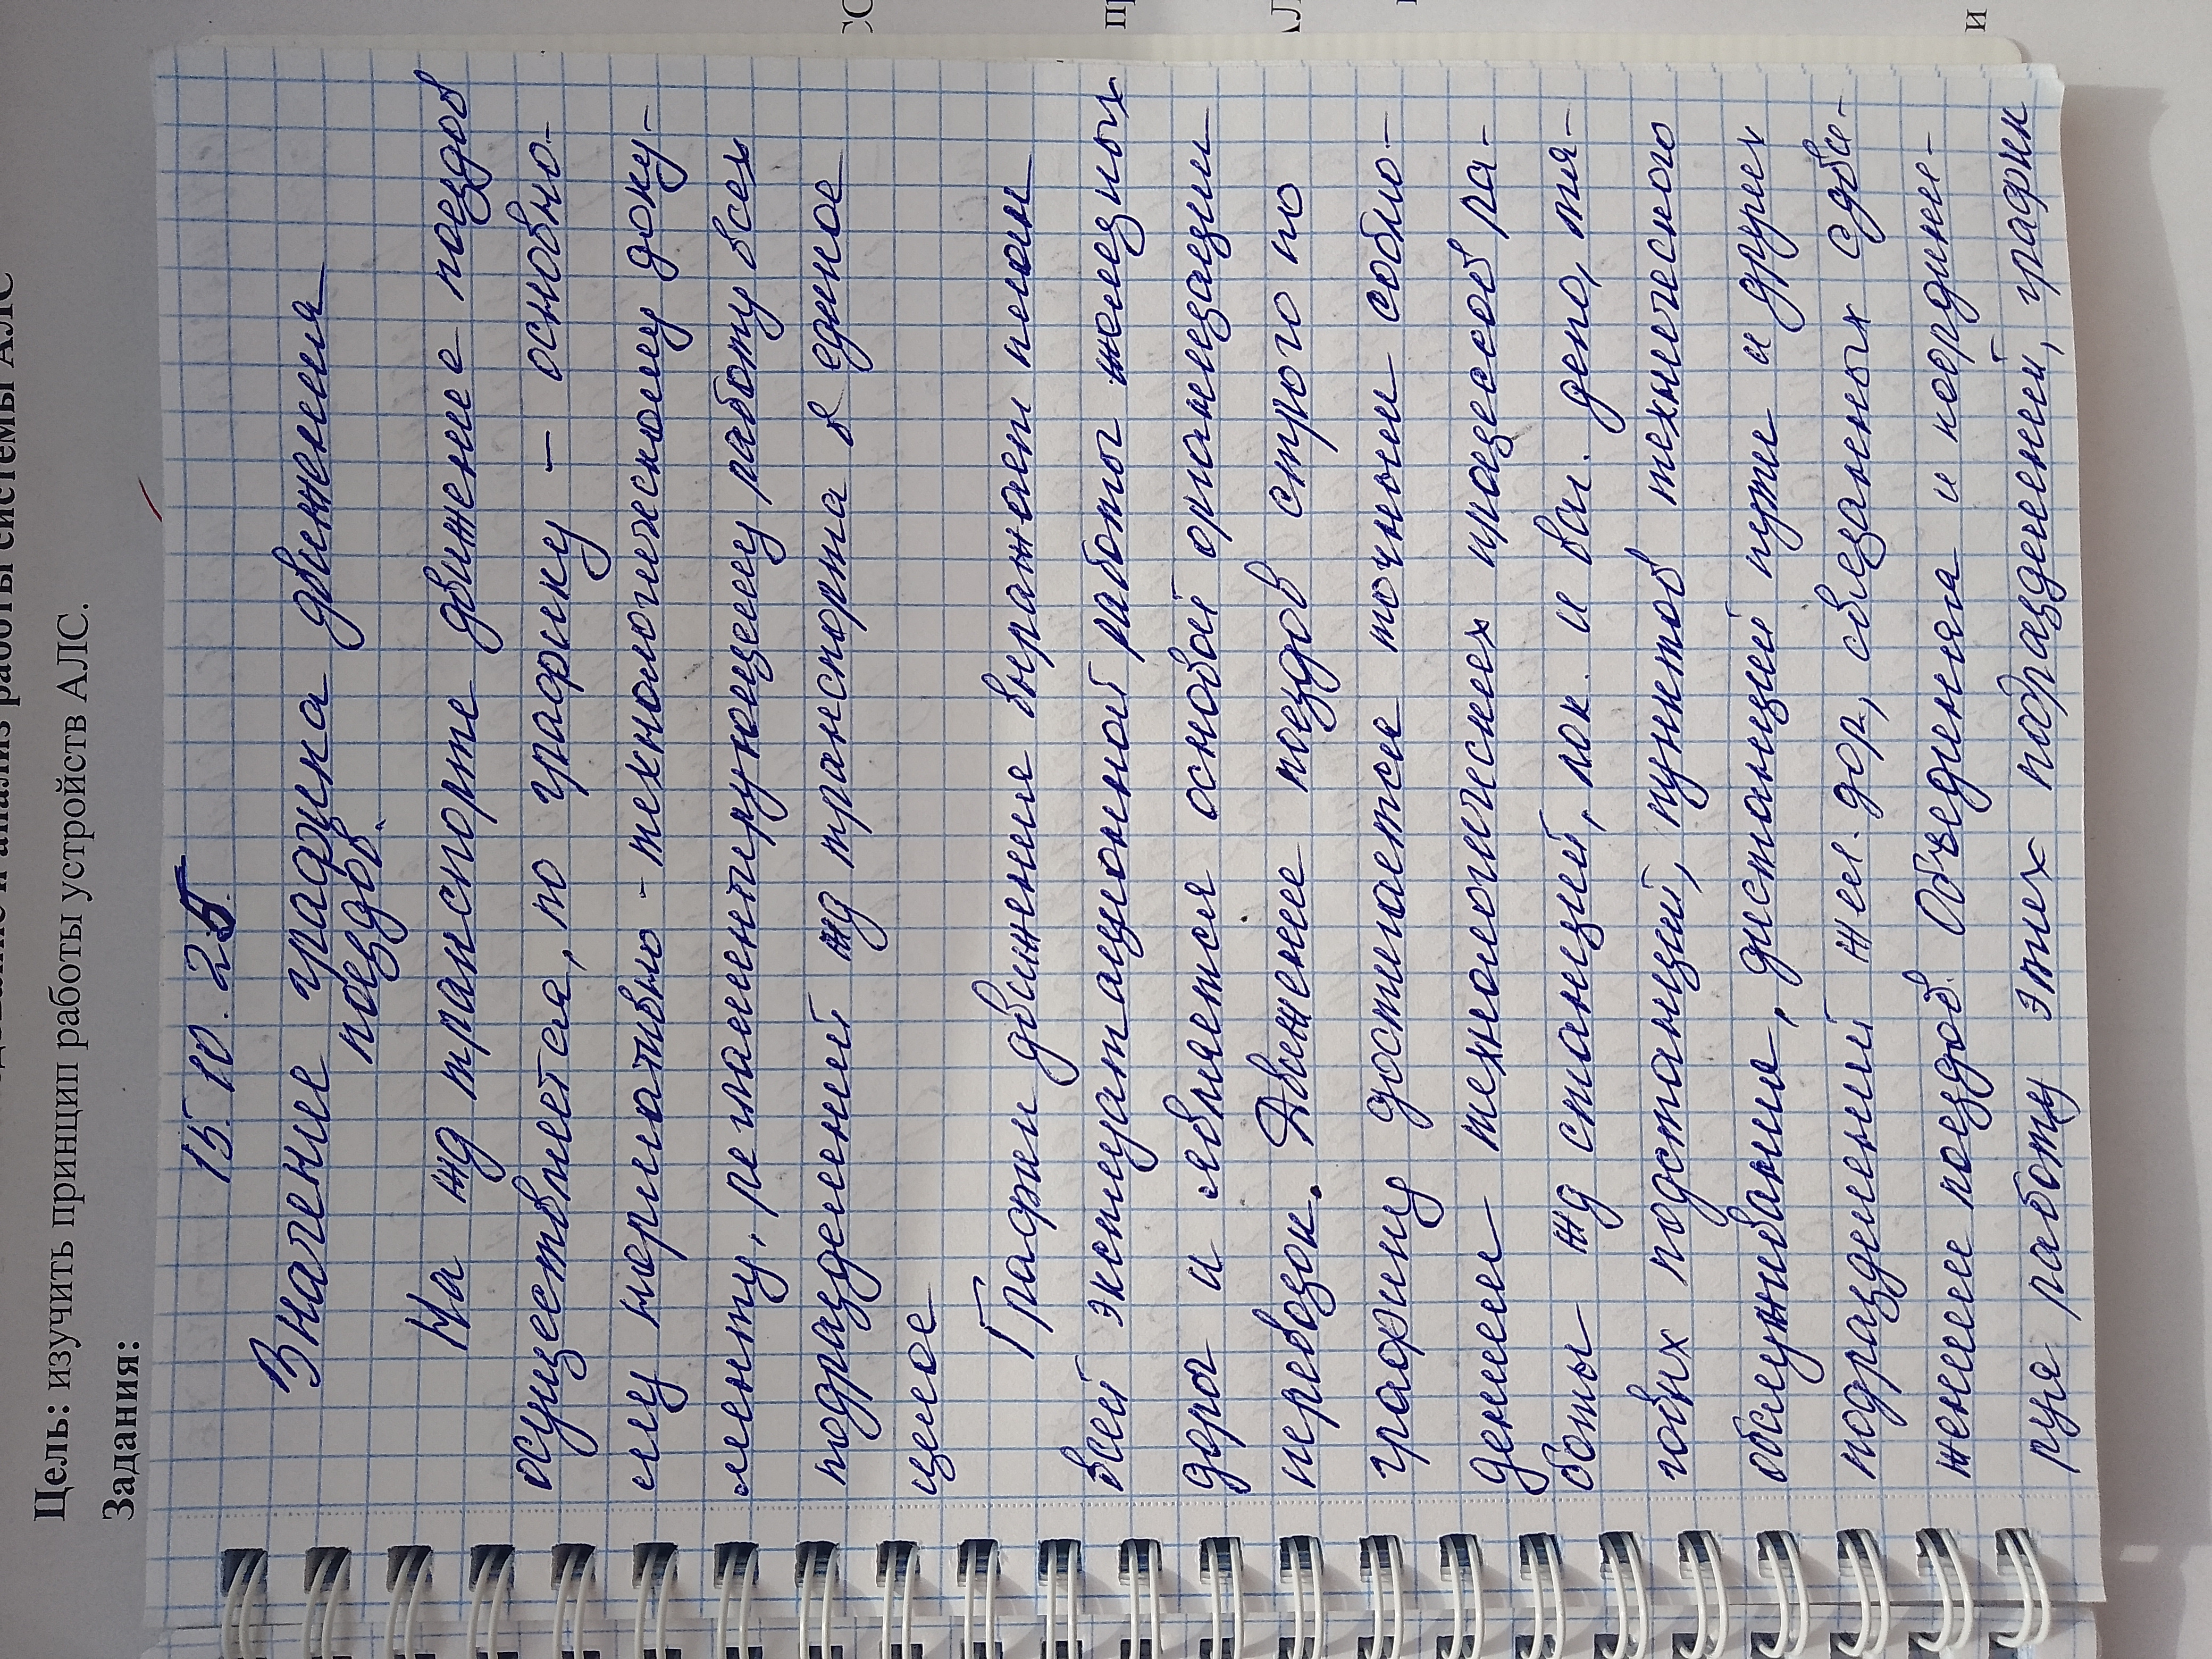 Цель: изучить принцип работы устройств АЛС.
Задания:
15. 10. 25.
Значение графика движения
поездов.
На жд транспорте движение поездов
осуществляется, по графику – основно-
му нормативно - технологическому доку-
менту, регламентирующему работу всех
подразделений жд транспорта в единое
целое
График движения выражает план
всей эксплуатационной работы железных
дорог и является основой организации
перевозок. Движение поездов строго по
графику достигается точным соблю-
дением технологических процессов ра-
боты жд станций, лок. и ваг. депо, тя-
говых подстанций, пунктов технического
обслуживания, дистанций пути и других
подразделений жел. дор, связанных с дви-
жением поездов. Объединяя и координи-
руя работу этих подразделений, график